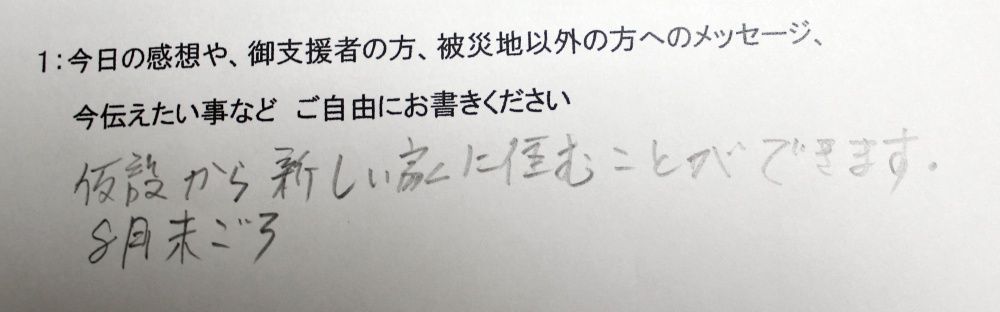 1：今日の感想や、御支援者の方、被災地以外の方へのメッセージ、
今伝えたい事など　ご自由にお書きください
仮設から新しい家に住むことができます.
8月末ごろ